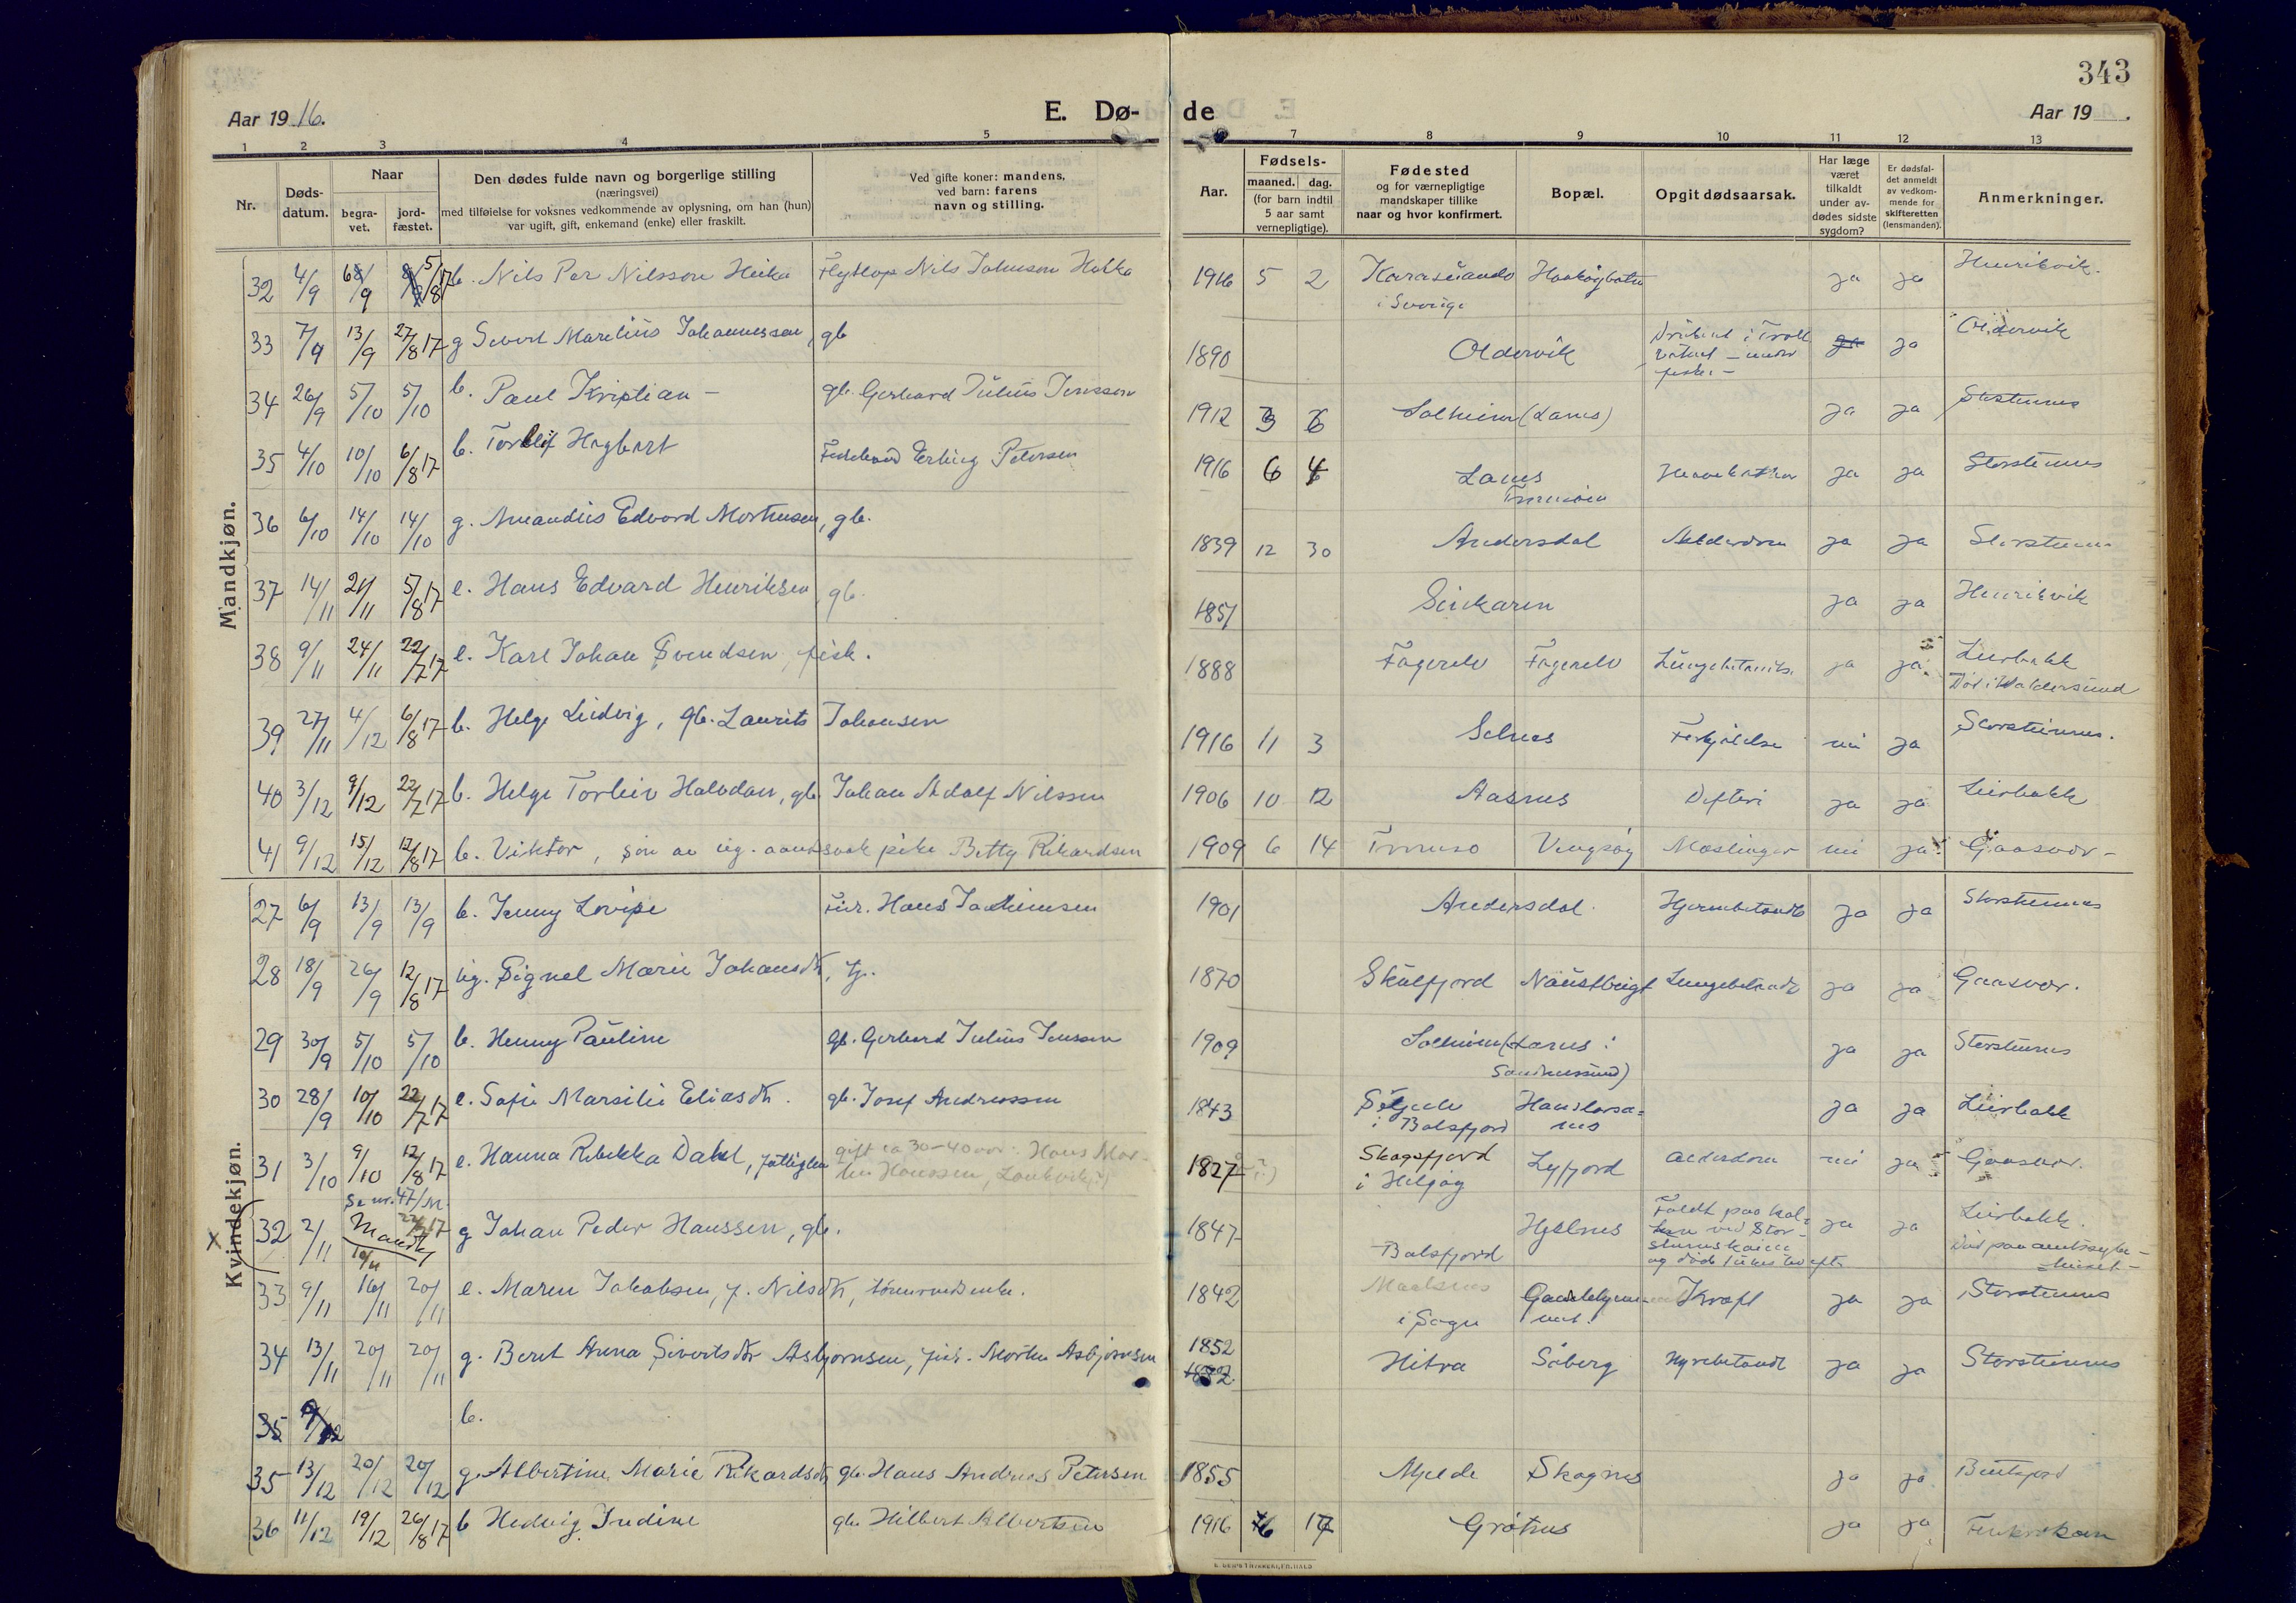 343
Aar 1916. E. Dø- de Aar 19 .
1 2 3 4 5 6 7 8 9 10 11 12 13
Nr. Døds-datum. Naar begra-vet. jord-fæstet. Den dødes fulde navn og borgerlige stilling (næringsvei) med tilføielse for voksnes vedkommende av oplysning, om han (hun) var ugift, gift, enkemand (enke) eller fraskilt. Ved gifte koner: mandens, ved barn: farens navn og stilling. Aar. Fødsels- maaned. dag. (for barn indtil 5 aar samt vernepligtige). Fødested og for værnepligtige mandskaper tillike naar og hvor konfirmert. Bopæl. Opgit dødsaarsak. Har læge været tilkaldt under av-dødes sidste sygdom? Er dødsfal-det anmeldt av vedkom-mende for skifteretten (lensmanden). Anmerkninger.
Mandkjøn.
32 4/9 b. Nils Per Nilsson Heika Flytlap Nils Johnson Heika 1916 5 2 Karasuando i Sverige ja ja Henrikvik.
33 7/9 13/9 27/8 17 g Severt Marelius Johannessen, gb 1890 Oldervik ja ja Oldervik
34 26/9 5/10 5/10 b. Paul Kristian - gb. Gerhard Julius Jenssen 1912 3 6 Solheim (Lanes) ja ja Storsteinnes
35 4/10 10/10 6/8 17 b. Torleif Hagbart Erling Petersen 1916 6 4 Lanes Tromsøen ja ja Storsteinnes
36 6/10 14/10 14/10 g. Amandus Edvard Mortensen, gb. 1839 12 30 Andersdal Alderdom ja ja Storsteinnes
37 14/11 21/11 5/8 17 e. Hans Edvard Henriksen, gb. 1851 ja ja Henrikvik
38 9/11 24/11 22/7 17 e. Karl Johan Svendsen, fisk. 1888 Fagerelv Fagerelv Lungebetændelse ja ja Leirbakk Død i Waldersund
39 27/11 4/12 6/8 17 b. Helge Ludvig, gb. Laurits Johansen 1916 11 3 Selnes Forkjølelse nei ja Storsteinnes.
40 3/12 9/12 22/7 17 b. Helge Torleiv Halvdan, gb. Johan Adolf Nilssen 1906 10 12 Aasnes Difteri ja ja Leirbakk
41 9/12 15/12 12/8 17 b. Viktor, søn av ug. aandssvak pike Betty Rikardsen 1909 6 14 Tromsø Vengsøy Mæslinger nei ja Gaasvær -
Kvindekjøn.
27 6/9 13/9 13/9 b. Jenny Lovise Hans Joachimsen 1901 Andersdal. Hjernebetændelse ja ja Storsteinnes
28 18/9 26/9 12/8 17 ug. Signel Marie Johansdtr, tj. 1870 Skulfjord Naustbugt Lungebetændelse ja ja Gaasvær.
29 30/9 5/10 5/10 b. Henny Pauline gb. Gerhard Julius Jenssen 1909 Solheim (Lanes i Sandnessund) ja ja Storsteinnes
30 28/9 10/10 22/7 17 e. Sofie Marsilie Eliasdtr. gb. Josef Andreassen 1843 i Balsfjord Hanslarsa=nes ja ja Leirbakk
31 3/10 9/10 12/8 17 e. Hanna Rebekka Dahl, fattiglem gift ca 30-40 aar: Hans Mor-ten Hanssen, 1827 Skogsfjord i Helgøy Lyfjord Alderdom nei ja Gaasvær.
Se nr. 47/M.
x 32 2/11 Mandkj 10/11 22/7 17 g Johan Peder Hanssen, gb. 1847 Balsfjord Hjellnes Faldt paa hol-ken ved Stor-steinneskaien og døde ja ja Leirbakk. Død paa amtssyke-huset -
33 9/11 16/11 20/11 e. Maren Jakobsen, f. Nilsdtr, 1842 Maalsnes i Sogn Kræft ja ja Storsteinnes
34 13/11 20/11 20/11 g. Beret Anna Sivertsdtr Asbjørnsen, fisk. Morten Asbjørnsen 1852 Hitra Søberg Nyrebetændl ja ja Storsteinnes
35 9/12 b.
35 13/12 20/12 20/12 g. Albertine Marie Rikardsdtr gb. Hans Andreas Petersen 1855 Mjelde Skognes ja ja Bentsjord
36 11/12 19/12 26/8 17 b Hedvig Indine gb. Hilbert Albertsen 1916 6 17 Grøtnes ja ja Finkroken